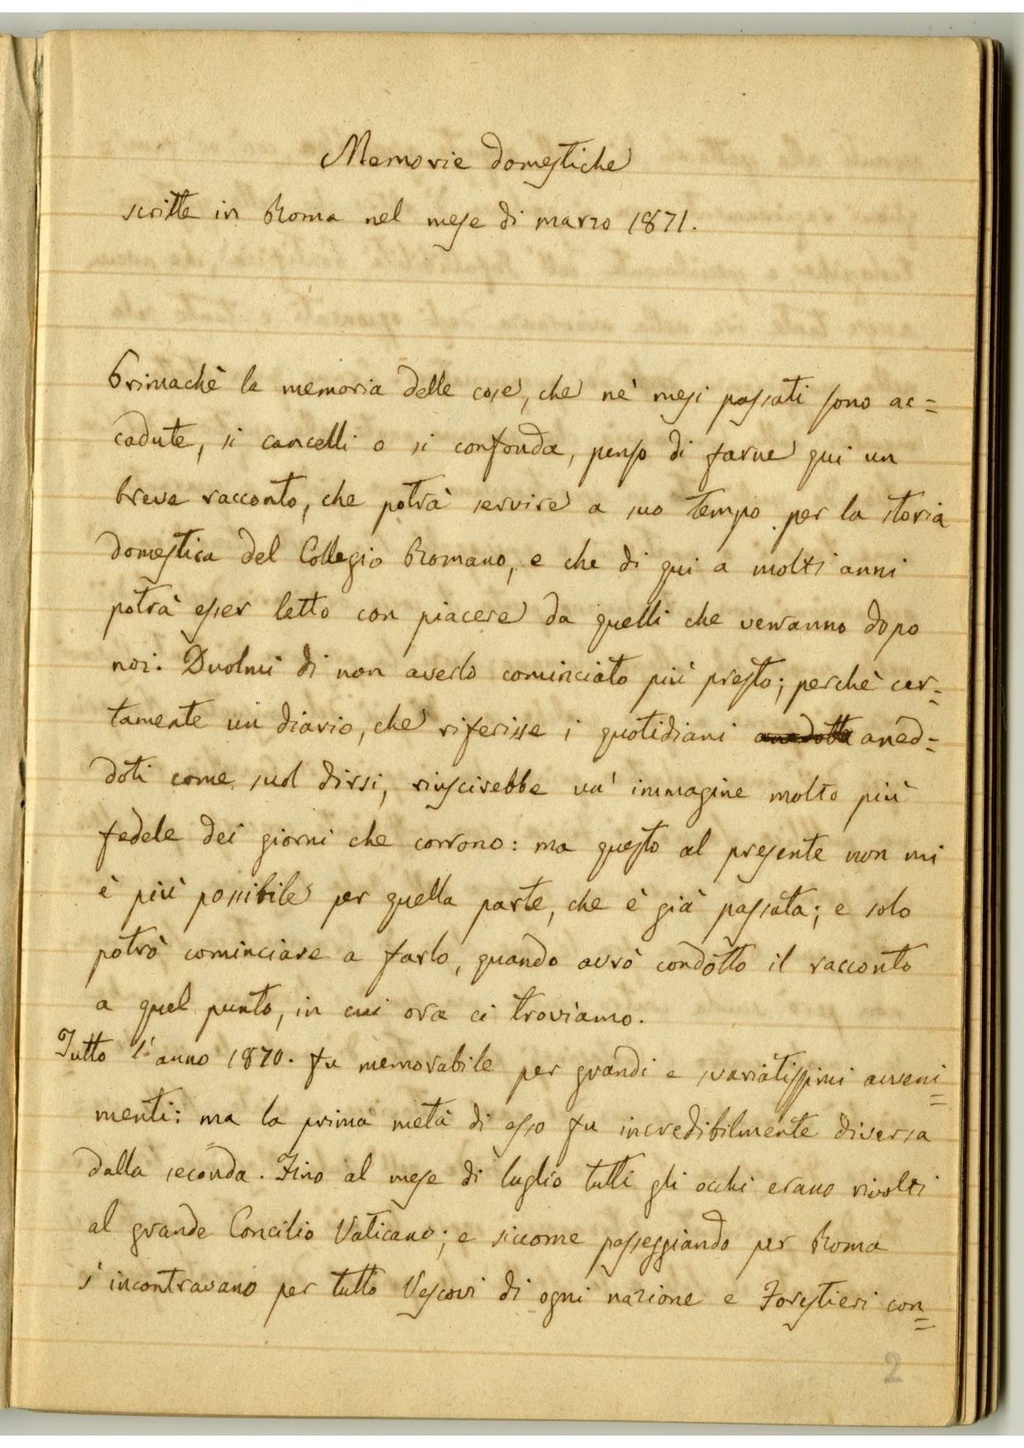 Memorie domestiche
scritte in Roma nel mese di marzo 1871.
Primachè la memoria delle cose, che nè mesi passati sono ac=
cadute, si cancelli o si confonda, penso di farne qui un
breve racconto, che potrà servire a suo tempo per la storia
domestica del Collegio Romano, e che di qui a molti anni
potrà esser letto con piacere da quelli che verranno dopo
noi. Duolmi di non averlo cominciato più presto; perchè cer=
tamente un diario, che riferisse i quotidiani aned=
doti come suol dirsi, riuscirebbe un' immagine molto più
fedele dei giorni che corrono: ma questo al presente non mi
è più possibile per quella parte, che è già passata; e solo
potrò cominciare a farlo, quando avrò condotto il racconto
a quel punto, in cui ora ci troviamo.
Tutto l'anno 1870. fu memorabile per grandi e svariatissimi avveni=
menti: ma la prima metà di esso fu incredibilmente diversa
dalla seconda. Fino al mese di luglio tutti gli occhi erano rivolti
al grande Concilio Vaticano; e siccome passeggiando per Roma
s'incontravano per tutto Vescovi di ogni nazione e Forestieri con=
2